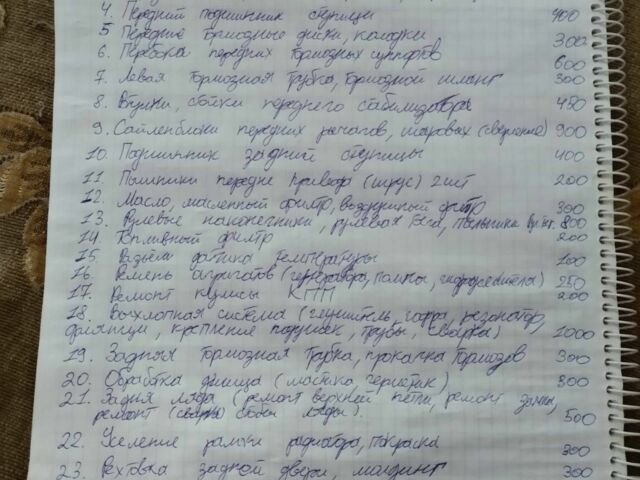 4. Передний подшипник ступицы 400
5 Передние тормозные диски, колодки 300
6. Переборка передних тормозных суппортов 600
7. Левая тормозная трубка, тормозной шланг 300
8. Втулки, стойки переднего стабилизатора 480
9. Сайленблоки передних рычагов, шаровых (сверление) 900
10. Подшипник задний ступицы 400
11. Пыльники передне привода (шрус) 2 шт 200
12. Масло, масленный фильтр, воздушный фильтр 300
13. Рулевые наконечники, рулевая тяга, пыльники 800
14. Топливный фильтр 200
15. Разъём датчика температуры 100
16. Ремень агрегатов (генератора, помпы, гидроусилителя) 250
17. Ремонт кулисы КПП 200
18. Выхлопная система (глушитель, гофра, резонатор,
фланцы, крепление подушек, трубы, сварка) 1000
19. Задняя тормозная трубка, прокачка тормозов 300
20. Обработка днища (мастика, герметик) 800
21. Задняя ляда (ремонт верхней петли, ремонт замка,
ремонт (сварка) ляды). 500
22. Усиление рамки радиатора, покраска 300
23. Рехтовка задней двери, молдинг 300